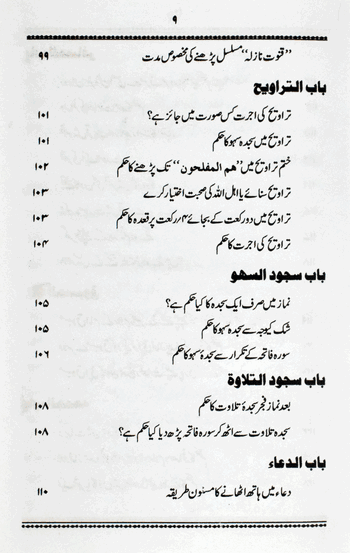 ۹
"قنوت نازلہ" مسلسل پڑھنے کی مخصوص مدت ۹۹
باب التراویح
تراویح کی اجرت کس صورت میں جائز ہے؟ ۱۰۱
تراویح میں سجدہ سہو کا حکم ۱۰۱
ختم تراویح میں "هم المفلحون" تک پڑھنے کا حکم ۱۰۲
تراویح سنائے یا اہل اللہ کی صحبت اختیار کرے ۱۰۳
تراویح میں دو رکعت کے بجائے ۴ رکعت پر قعدہ کا حکم ۱۰۳
تراویح کی اجرت کا حکم ۱۰۴
باب سجود السهو
نماز میں صرف ایک سجدہ کا کیا حکم ہے؟ ۱۰۵
شک کیوجہ سے سجدہ سہو کا حکم ۱۰۵
سورہ فاتحہ کے تکرار سے سجدۂ سہو کا حکم ۱۰۶
باب سجود التلاوة
بعد نماز فجر سجدۂ تلاوت کا حکم ۱۰۸
سجدہ تلاوت سے اٹھ کر سورہ فاتحہ پڑھ دیا کیا حکم ہے؟ ۱۰۸
باب الدعاء
دعاء میں ہاتھ اٹھانے کا مسنون طریقہ ۱۱۰